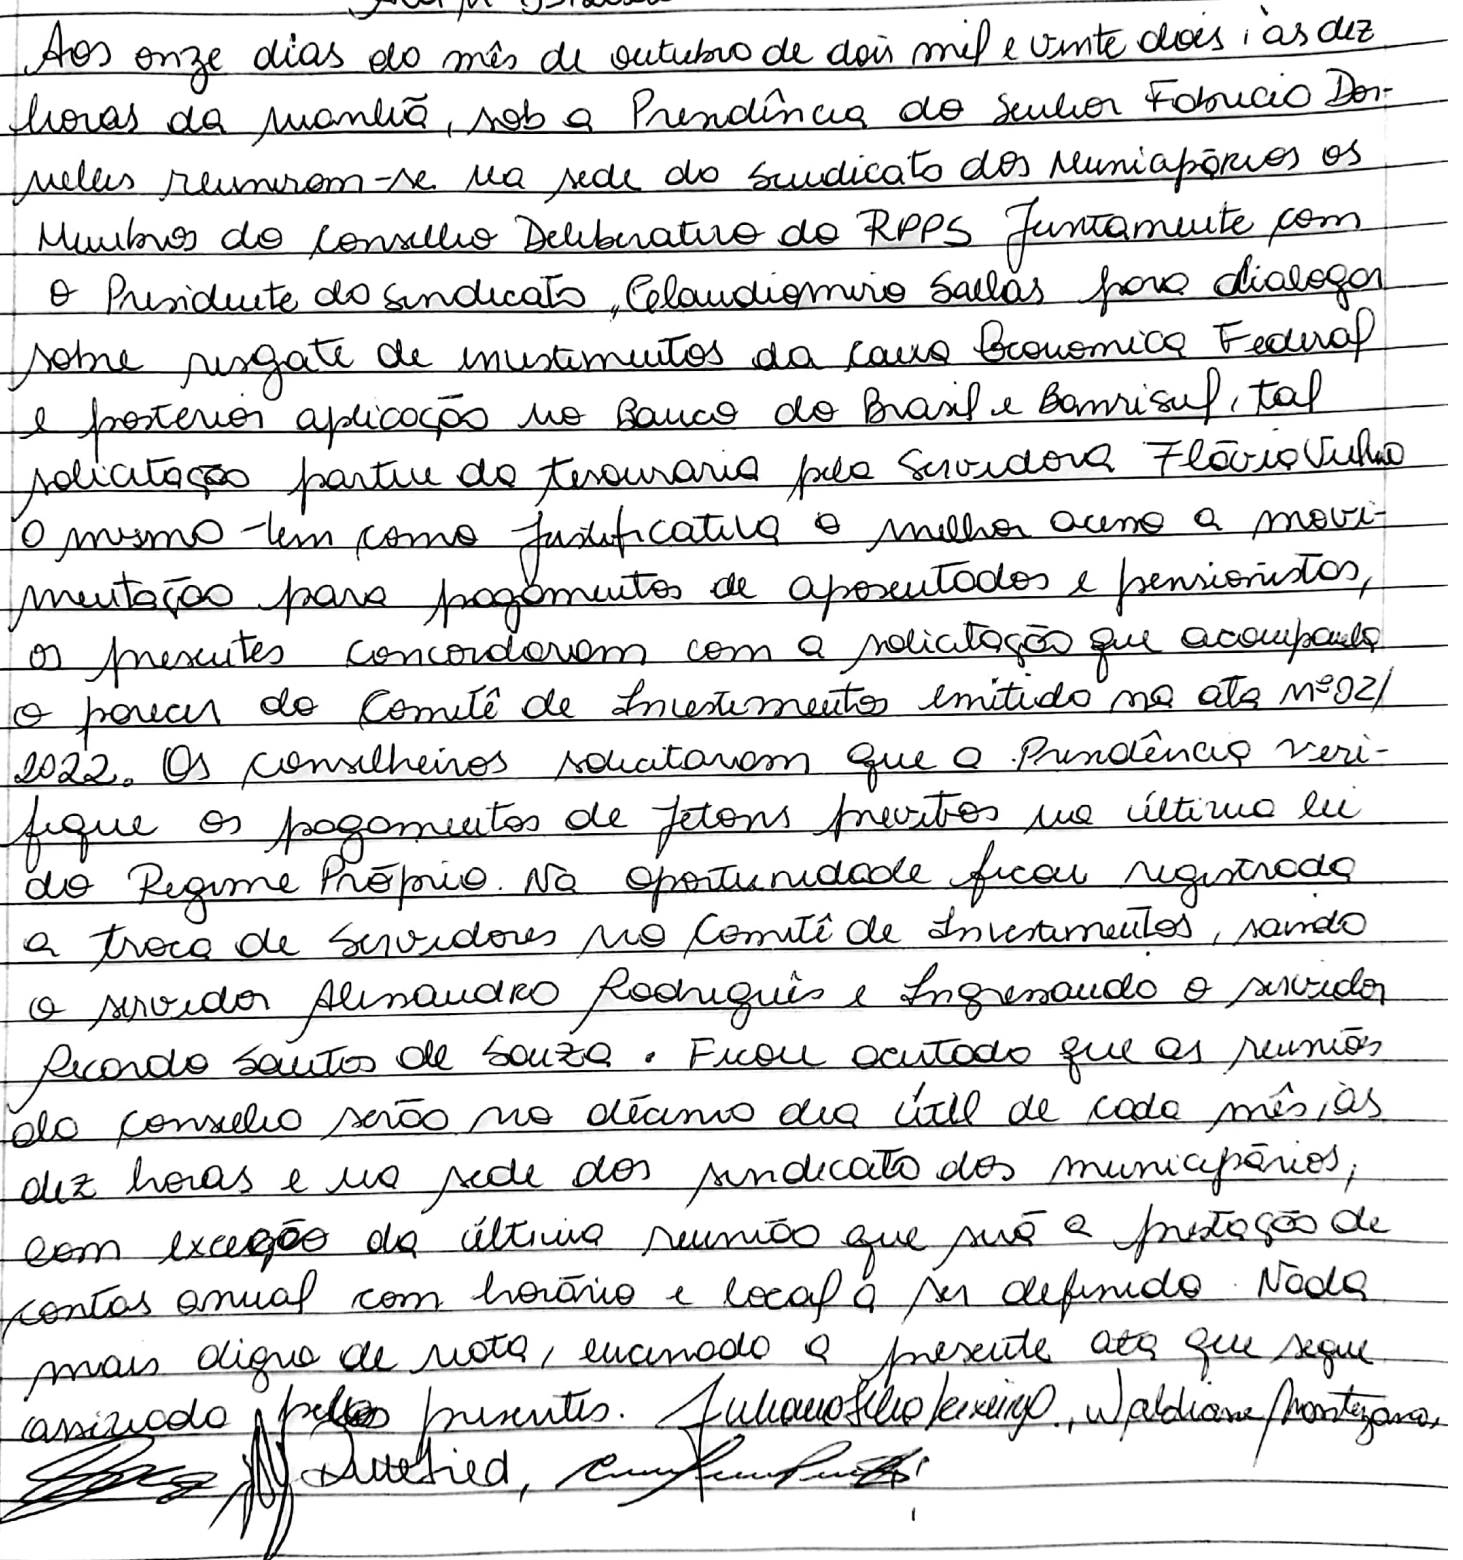 Aos onze dias do mês de outubro de dois mil e vinte dois, às dez
horas da manhã, sob a Presidência do Senhor Fabricio Dor-
nelles reuniram-se na sede do Sindicato dos Municipários os
Membros do Conselho Deliberativo do RPPS Juntamente com
o Presidente do Sindicato, Claudiomiro Sallas para dialogar
sobre resgate de investimentos da Caixa Economica Federal
e posterior aplicação no Banco do Brasil e Banrisul, tal
solicitação partiu da tesouraria pela Servidora Flávia
O mesmo tem como Justificativa o melhor acesso a movi-
mentação para pagamentos de aposentados e pensionistas,
os presentes concordaram com a solicitação que acompanha
o parecer do Comitê de Investimentos emitido na ata nº 02/
2022. Os conselheiros solicitaram que a Presidência veri-
fique os pagamentos de Jetons previstos na última lei
do Regime Próprio. Na oportunidade ficou registrada
a troca de Servidores no Comitê de Investimentos, saindo
o servidor Alessandro Rodrigues e Ingressando o servidor
Ricardo Santos de Souza. Ficou acutado que as reuniões
do conselho serão no décimo dia útil de cada mês, às
dez horas e na sede dos sindicato dos municipários,
com exceção da última reunião que será a prestação de
contas anual com horário e local a ser definido. Nada
mais digno de nota, encerrado a presente ata que segue
assinada pelos presentes. Juliano, Waldiane Montezana,